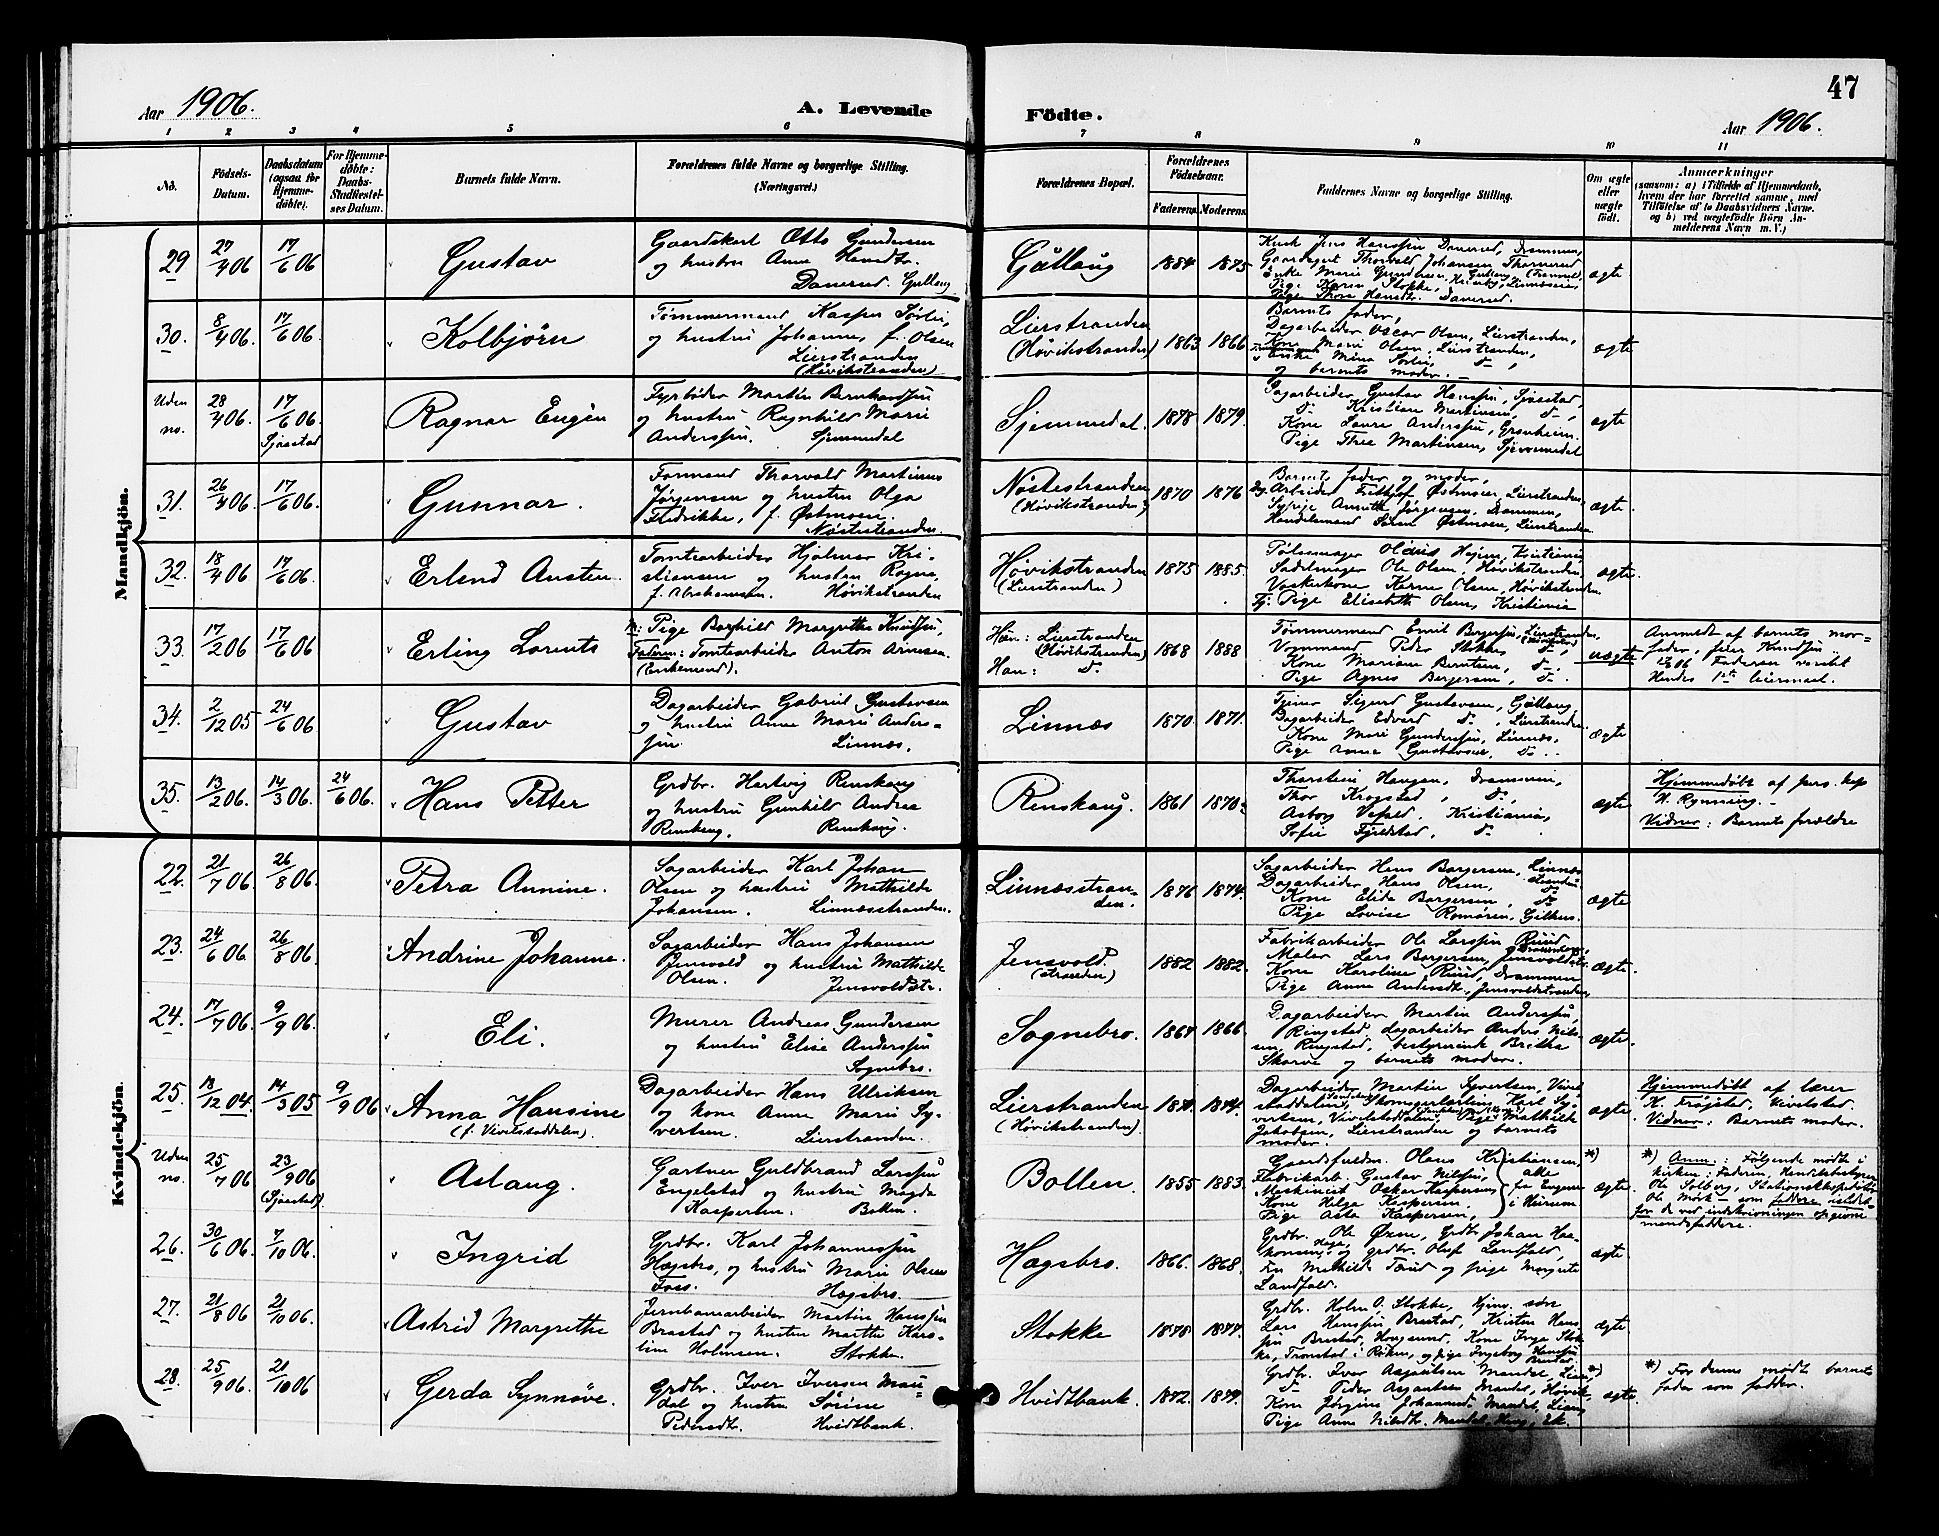 47
Aar 1906.
A. Levende
Födte.
Aar 1906.
1 2 3 4 5 6 7 8 9 10 11
No.
Födsels-
Datum.
Daabsdatum
(ogsaa for
Hjemme-
döbte).
For Hjemme-
döbte:
Daabs-
Stadfæstel-
ses Datum.
Barnets fulde Navn.
Forældrenes fulde Navne og borgerlige Stilling.
(Næringsvei.)
Forældrenes Bopæl.
Forældrenes
Födselsaar.
Faderens. Moderens.
Faddernes Navne og borgerlige Stilling.
Om ægte
eller
uægte
födt.
Anmærkninger
(saasom: a) i Tilfælde af Hjemmedaab,
hvem der har forrettet samme, med
Tilföielse af to Daabsvidners Navne,
og b) ved uægtefödte Börn An-
melderens Navn m. V.)
Mandkjön.
29 27/4 06 17/6 06 Gustav
Gaardskarl Otto Gundersen
og hustru Anne
Danerud. Gullaug
Gullaug 1884 1875 ægte
30. 8/4 06 17/6 06 Kolbjörn
Tømmermand Kasper Sørli,
og hustru Johanne, f. Olsen
Lierstranden
(Høvikstranden)
Lierstranden
(Høvikstranden) 1863 1866
Barnets fader,
Dagarbeider Oscar Olsen, Lierstranden,
Kone Marie Olsen, Lierstranden,
Enke Mina Sørli, do,
og barnets moder.
ægte
Uden
no. 28/4 06 17/6 06
Sjåstad
Ragnar Eugen
Fyrbøder Martin Bernhardsen
og hustru Ragnhild Marie
Anderssen. Sjemmedal
Sjemmedal. 1878 1879.
Sagarbeider Gustav Hanssen, Sjåstad,
do Kristian Martinsen, do,
Kone Laura Anderssen, Grønheim.
Pige Thea Martinsen, Sjemmedal
ægte
31. 26/4 06 17/6 06 Gunnar.
Formand Thorvald Martinus
Jørgensen og hustru Olga
Fredrikke, f. Østmoen.
Nøstestranden.
Nøstestranden
(Høvikstranden) 1870 1876
Barnets fader og moder,
Arbeider Frithjof Østmoen, Lierstranden,
Sypige Annette Jørgensen, Drammen,
Handelsmand Søren Østmoen, Lierstranden.
ægte.
32. 18/4 06 17/6 06. Erlend Austen.
Tomtearbeider Hjalmar Kri-
stiansen og hustru Ragna,
f. Abrahamsen. Høvikstranden
Høvikstranden
(Lierstranden) 1875 1885.
Pølsemager Olaus Hagen, Kristiania
Sadelmager Ole Olsen, Høvikstranden
Vaskerkone Karen Olsen, Høvikstranden.
Pige Elisabeth Olsen, Kristiania
ægte.
33. 17/2 06 17/6 06 Erling Lorents
M: Pige Borghild Margrethe Knudsen,
Faderen: Tomtearbeider Anton Arnesen
(Enkemand).
Hun: Lierstranden
(Høvikstranden)
Han: do. 1868 1888
Tømmermand Emil Borgersen, Lierstranden,
Vommand Peder Stokke, do,
Kone Mariane Berntsen, do.
Pige Agnes Borgersen, do.
uægte
Anmeldt af barnets mor-
fader, Peer Knudsen
Faderens
Hendes 1ste leiermaal.
34. 2/12 05 24/6 06 Gustav
Dagarbeider Gabriel Gustavsen
og hustru Anne Marie Anders-
sen. Linnæs.
Linnæs 1870 1871.
Tjener Sigurd Gustavsen, Gullaug,
Dagarbeider Edvard do, Lierstranden.
Kone Marie Gunderssen, Linnæs,
Pige Anna Gustavsen, do.
ægte
35. 13/2 06. 14/3 06. 24/6 06. Hans Petter
Grdbr. Hartvig Renskaug
og hustru Gunhild Andrea
Renskaug. Renskaug.
Renskaug. 1861 1870
Thorstein Haugen, Drammen,
Thor Krogstad, do,
Aasborg Vefald, Kristiania,
Sofie Fjeldstad, do.
ægte
Hjemmedøbt af pers. kap
N. Rynning.
Vidner: Barnets forældre
Kvindekjön.
22. 21/7 06. 26/8 06. Petra Annine.
Sagarbeider Karl Johan
Olsen og hustru Mathilde
Johansen. Linnæsstranden.
Linnæsstran-
den. 1876 1874.
Sagarbeider Hans Borgersen, Linnæs
Dagarbeider Hans Olsen,
Kone Elida Borgersen, do
Pige Lovise Romøren, Gilhus.
ægte
23. 24/6 06. 26/8 06. Andrine Johanne.
Sagarbeider Hans Johansen
Jensvold og hustru Mathilde
Olsen. Jensvoldstr.
Jensvold.
(stranden) 1882 1882.
Fabrikarbeider Ole Larssen Ruud
Maler Lars Borgersen, Jensvoldstr.
Kone Karoline Ruud, Drammen
Pige Anna Andersdt, Jensvoldstranden
ægte.
24. 17/7 06. 9/9 06. Eli.
Murer Andreas Gundersen
og hustru Elise Anderssen
Sognebro.
Sognebro. 1864 1866.
Dagarbeider Martin Anderssen,
Ringstad, dagarbeider Anders Nils-
sen, Ringstad, bestyrerinde Britha
Skarve og barnets moder.
ægte.
25. 13/12 04. 14/3 05 9/9 06 Anna Hansine
(f. Vivelstaddalen).
Dagarbeider Hans Ulriksen
og kone Anne Marie Sy-
vertsen. Lierstranden.
Lierstranden
(Høvikstranden). 1874.
Dagarbeider Martin Syvertsen, Vivel-
staddalen, Karl Sy-
vertsen, Vivelstaddalen, Pige Mathilde
Jakobsen, Lierstranden og barnets
moder.
ægte
Hjemmedøbt af lærer
K. Frøgstad, Vivelstad.
Vidner: Barnets moder.
Uden
no. 25/7 06 23/9 06
(Sjåstad) Aslaug.
Gartner Guldbrand Larssen
Engelstad og hustru Magda
Kaspersen. Bollen.
Bollen. 1855 1883.
Gaardsfuldm. Olaus Kristiansen,
Fabrikarb. Gustav Nilssen,
Maskinist Oskar Kaspersen
Kone Helga Kaspersen.
Pige Asta Kaspersen,
alle
fra Engene
i Hurum
*)
ægte.
*) Anm.: Følgende mødte i
kirken: Faderen,
Ole Solberg, Stationsexpeditør
Ole Mørk – som faddere istedet
for de ved indskrivningen opgivne
mandsfaddere.
26. 30/6 06. 7/10 06. Ingrid
Grdbr. Karl Johannessen
Hægsbro, og hustru Marie Olsen
Foss. Hægsbro.
Hægsbro. 1866. 1868.
Grdbr. Ole Øxne, Grdbr Johan Haa-
konsen, og grdbr. Oluf Landfald,
Fru Mathilde Taud og pige Margrete
Landfald.
ægte
27. 21/8 06 21/10 06. Astrid Margrethe
Jernbanearbeider Martin Hanssen
Brastad og hustru Marthe Karo-
line Holmsen. Stokke.
Stokke 1878. 1877.
Grdbr. Holm O. Stokke, Hjmv. søn
Lars Hanssen Brastad, Kristen Hans-
sen Brastad, Hougsund, Kone Inga Stok-
ke, Tronstad i Røken, og pige Ingeborg Hanssen
Brastad.
ægte
28. 25/9 06. 21/10 06 Gerda Synnøve.
Grdbr. Iver Iversen Man-
dal og hustru Sørine
Pedersdt. Hvidtbank.
Hvidtbank. 1872. 1879.
Grdbr. Iver Asgautsen Mandal, Lier,
do Peder Asgautsen Mandal, Høvik,
Kone Jørgine Johannesd. Mandal, Lian,
Pige Anna Nilsdt. Mandal,
*)
ægte.
*) For denne mødte barnets
fader som fadder.